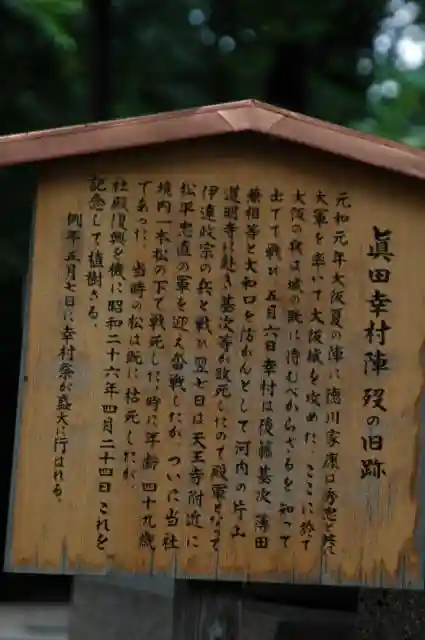 眞田幸村陣歿の旧跡
元和元年大阪夏の陣に徳川家康は秀忠と共に
大軍を率いて大阪城を攻めた。ここに於て
大阪の兵は城の既に恃むべからざるを知って
出てて戦い五月六日幸村は後藤基次 薄田
兼相等と大和口を防がんとして河内の片山
道明寺に赴き基次等が敗死したので殿軍となって
伊達政宗の兵と戦い翌七日は天王寺附近に
松平忠直の軍を迎え奮戦したが、ついに当社
境内一本松の下で戦死した。時に年齢四十九歳
であった。当時の松は既に枯死したが、
社殿復興を機に昭和二十六年四月二十四日これを
記念して植樹さる。
例年五月七日に幸村祭が盛大に行はれる。